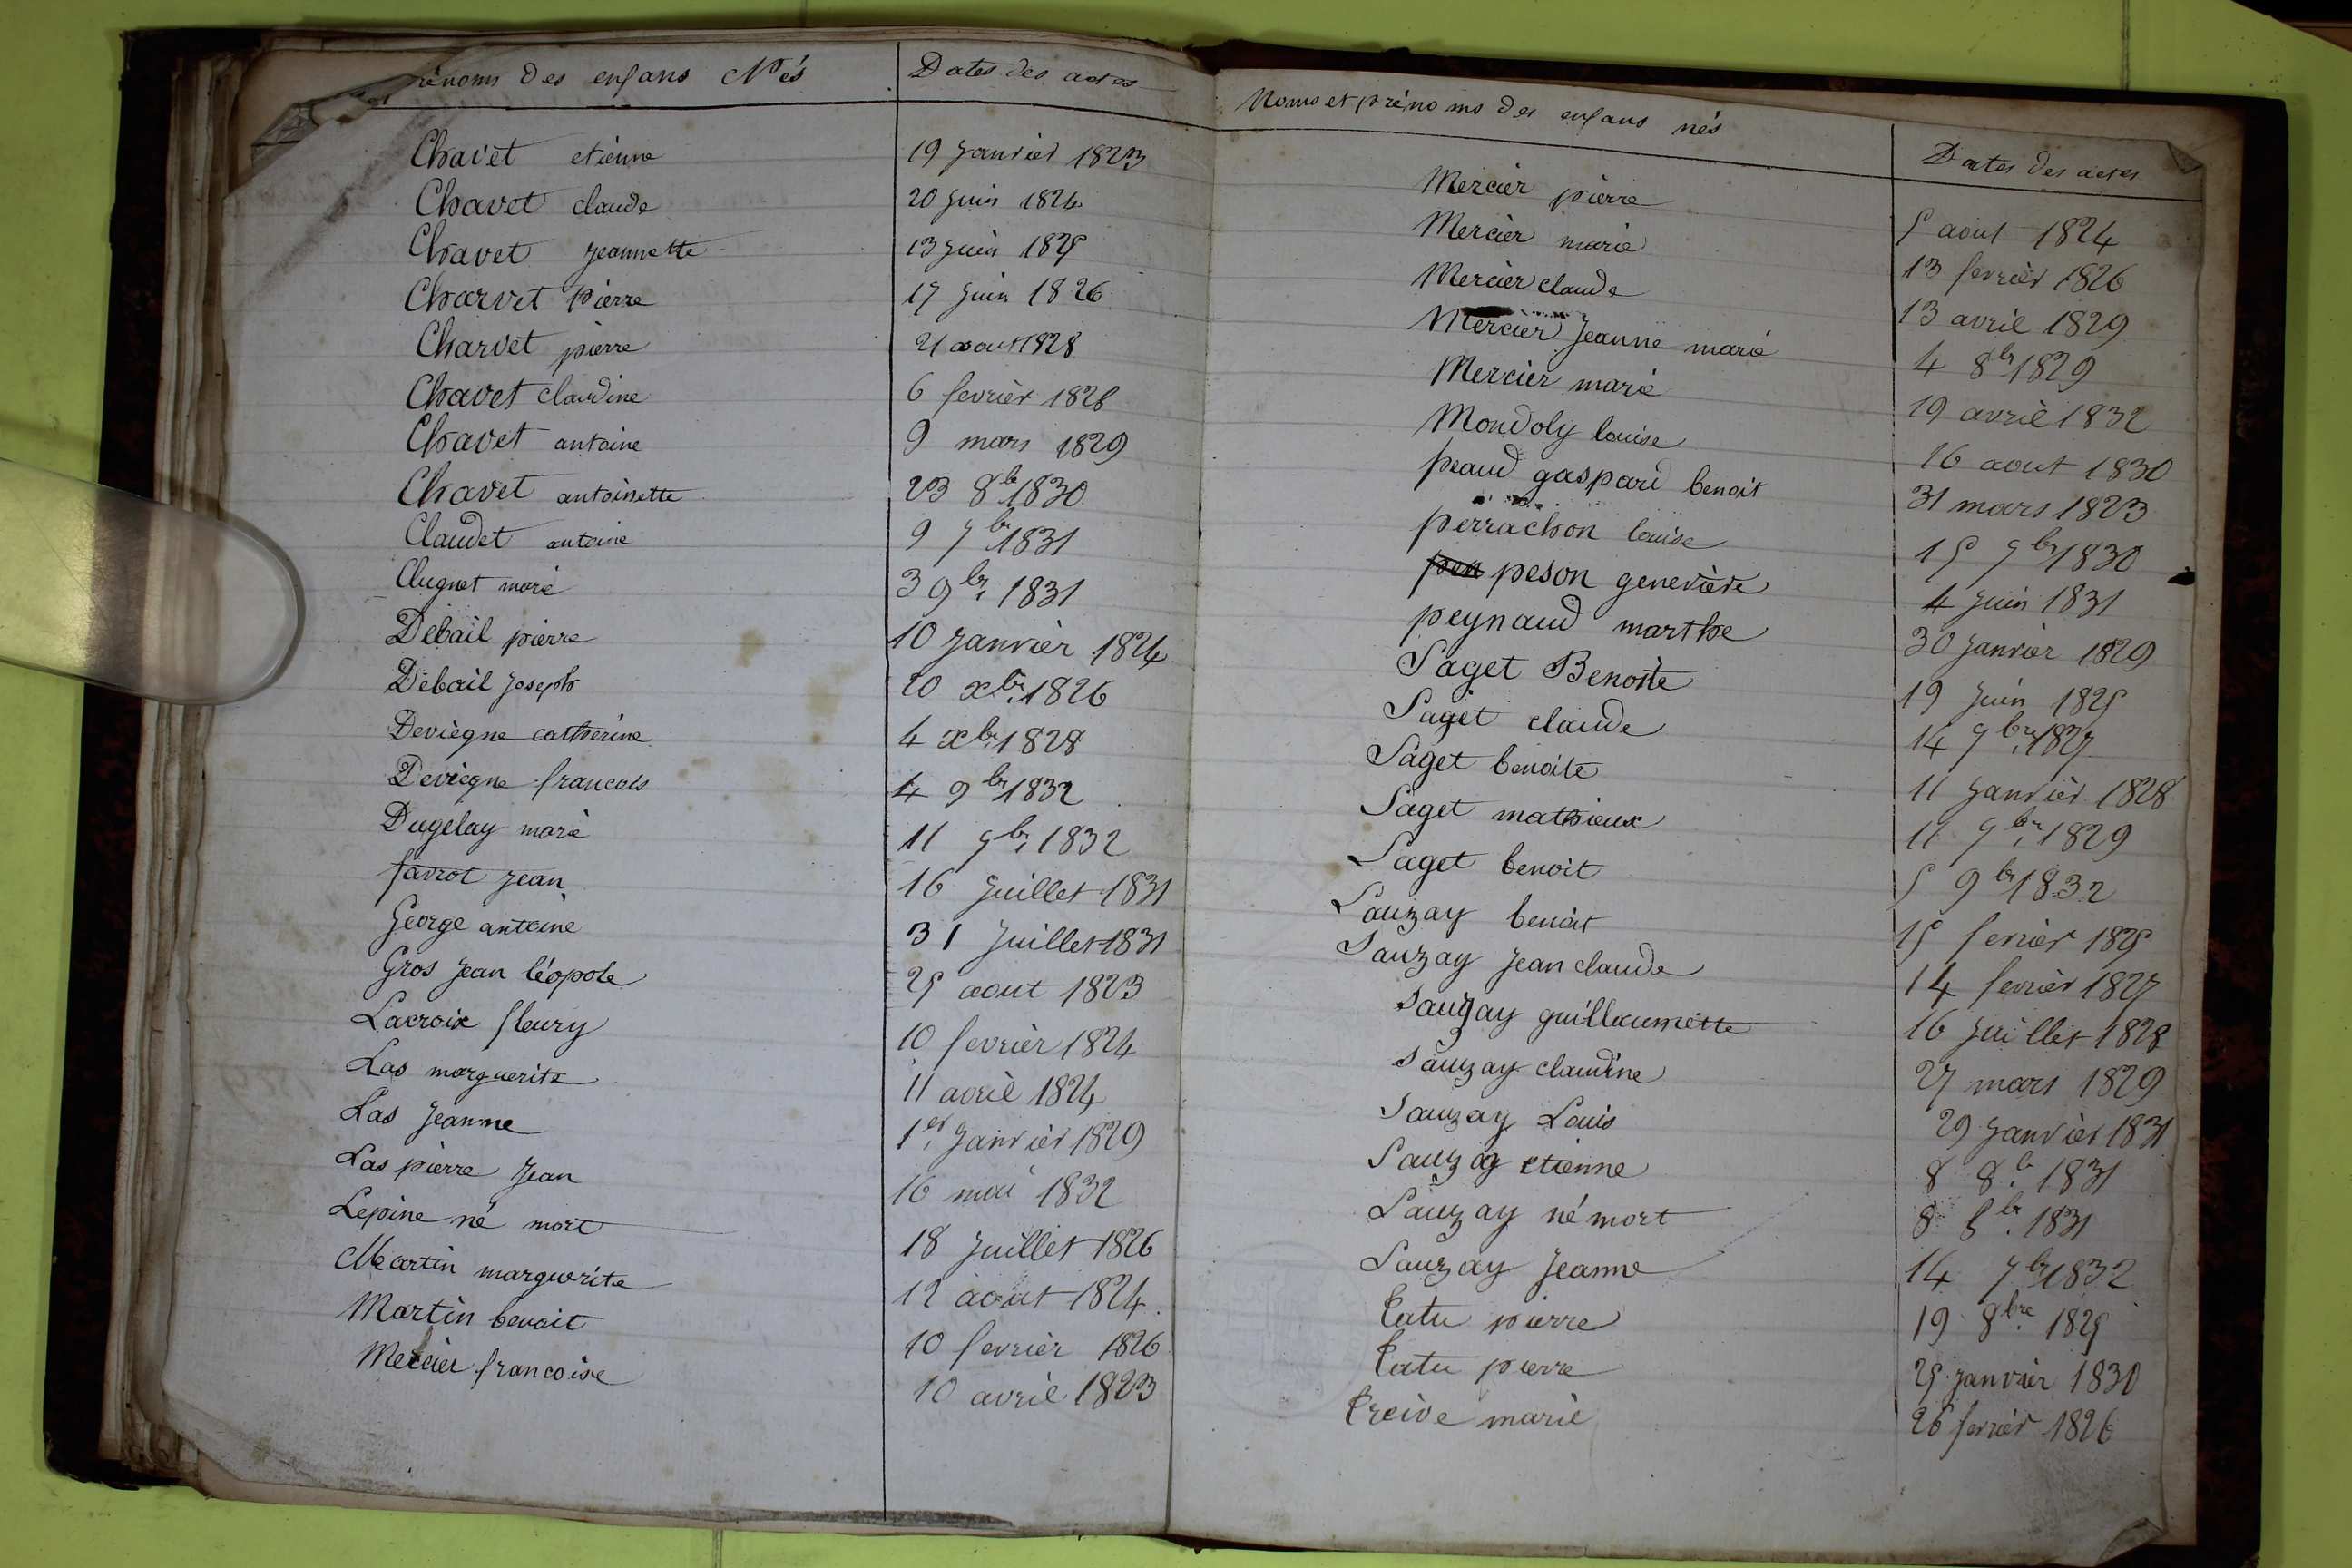 rénoms des enfans Nés Dates des actes
Chavet etienne 19 Janvier 1823
Chavet claude 20 Juin 1824
Chavet Jeannette 13 Juin 1825
Charvet Pierre 17 Juin 1826
Charvet pierre 21 aout 1828
Chavet claudine 6 fevrier 1828
Chavet antoine 9 mars 1829
Chavet antoinette 23 8b 1830
Claudet antoine 9 7br 1831
Clugnet marie 3 9br 1831
Debail pierre 10 Janvier 1824
Debail Joseph 20 xbr 1826
Deviegne catherine 4 xbr 1828
Deviegne francois 4 9br 1832
Dugelay marie 11 9br 1832
favrot Jean 16 Juillet 1831
George antoine 31 Juillet 1831
Gros Jean léopole 25 aout 1823
Lacroix fleury 10 fevrier 1824
Las marguerite 11 avril 1824
Las Jeanne 1er Janvier 1829
Las pierre Jean 16 mai 1832
Lepine né mort 18 Juillet 1826
Martin marguerite 12 aout 1824
Martin benoit 10 fevrier 1826
Mercier francoise 10 avril 1823
Noms et prénoms des enfans nés Dates des actes
Mercier pierre 5 aout 1824
Mercier marie 13 fevrier 1826
Mercier claude 13 avril 1829
Mercier Jeanne marie 4 8br 1829
Mercier marie 19 avril 1832
Mondoly louise 16 aout 1830
peaud gaspard benoit 31 mars 1823
perrachon louise 15 7br 1830
peson genevieve 4 Juin 1831
peynaud marthe 30 Janvier 1829
Saget Benoite 19 Juin 1825
Saget claude 14 9bre 1827
Saget benoite 11 Janvier 1828
Saget mathieux 11 9br 1829
Saget benoit 5 9br 1832
Sauzay benoit 15 fevrier 1825
Sauzay Jean claude 14 fevrier 1827
Sauzay guillaumette 16 Juillet 1828
Sauzay claudine 27 mars 1829
Sauzay Louis 29 Janvier 1831
Sauzay etienne 8 8b 1831
Sauzay né mort 8 8br 1831
Sauzay Jeanne 14 7br 1832
Tatu pierre 19 8bre 1825
Tatu pierre 25 Janvier 1830
Treive marie 26 fevrier 1826